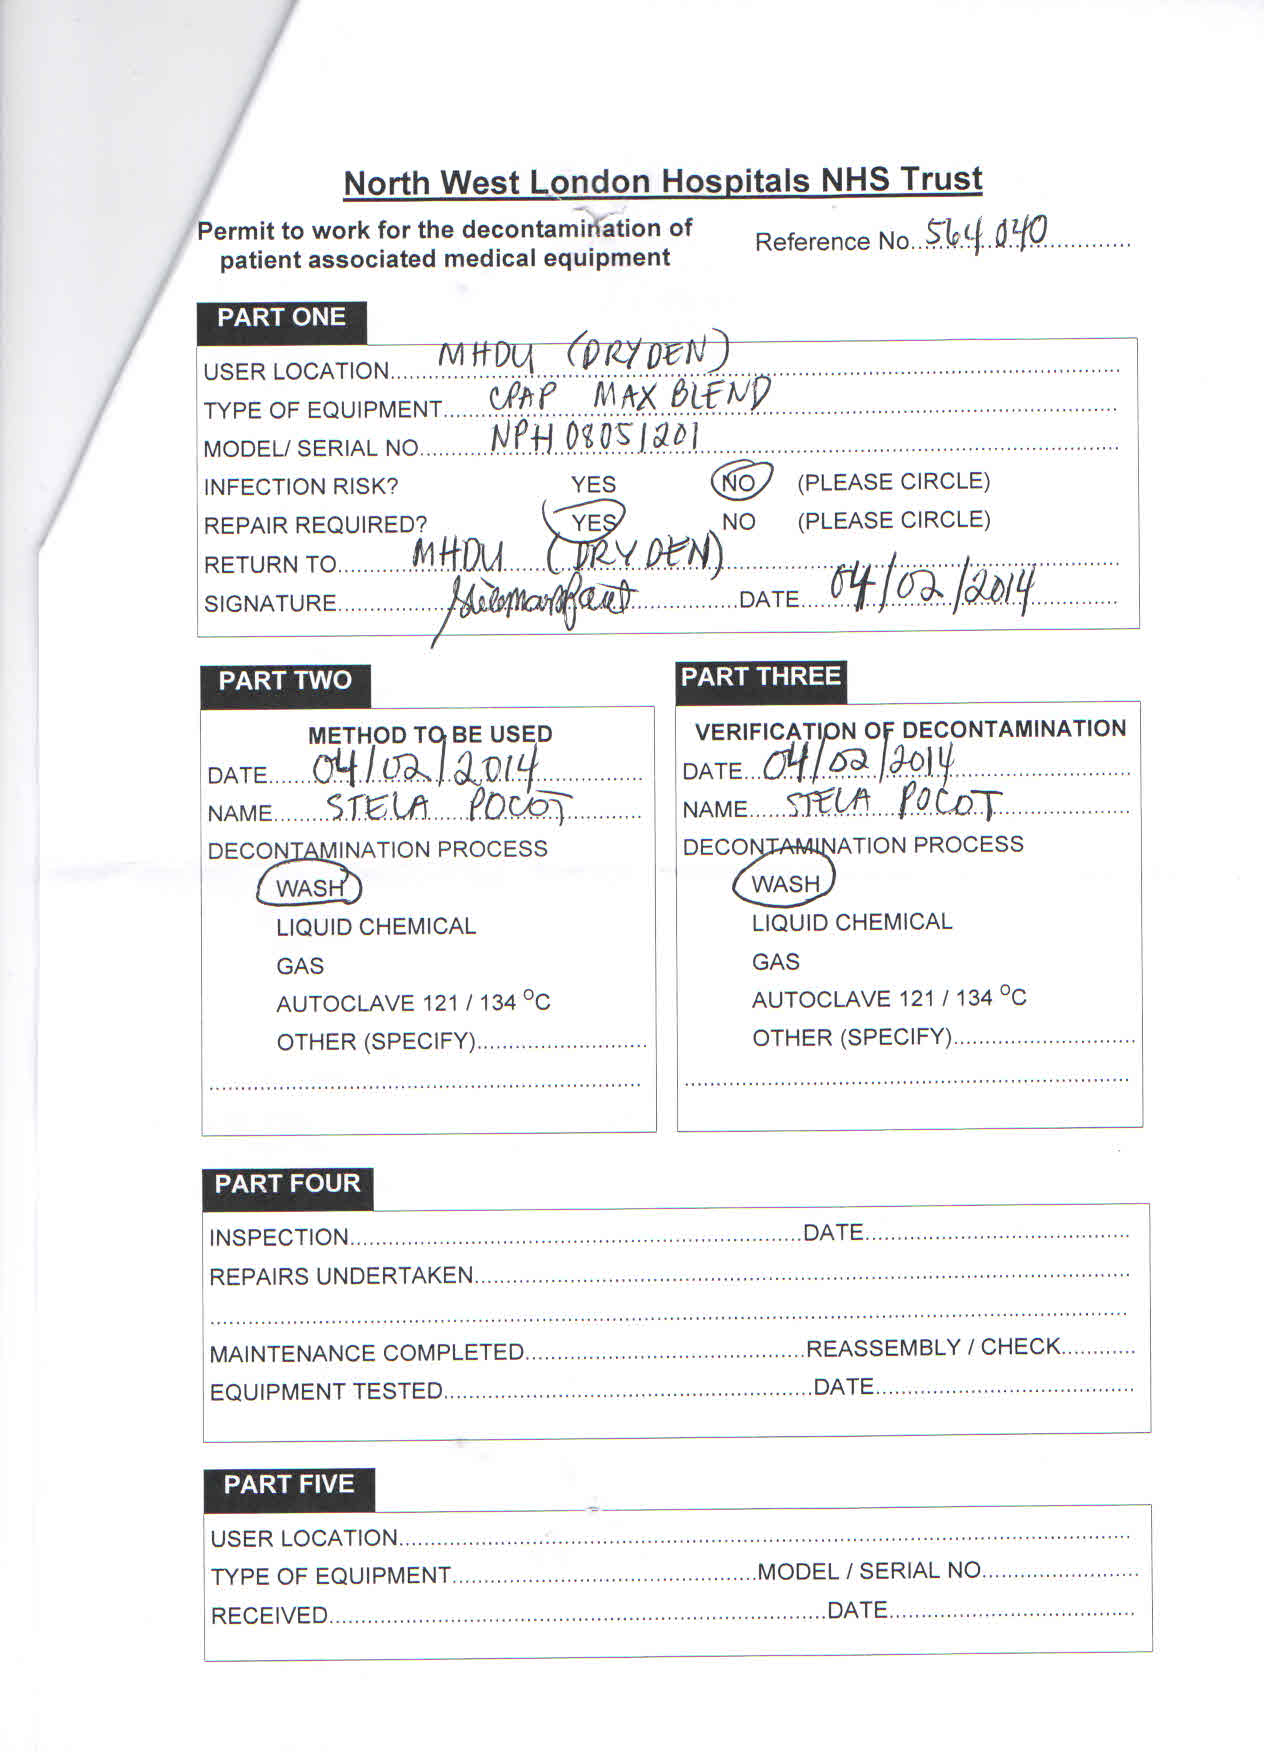 North West London Hospitals NHS Trust
Permit to work for the decontamination of
patient associated medical equipment
Reference No. 564 040
PART ONE
USER LOCATION MHDU (DRYDEN)
TYPE OF EQUIPMENT CPAP MAX BLEND
MODEL/ SERIAL NO NPH 08051201
INFECTION RISK? YES NO (PLEASE CIRCLE)
REPAIR REQUIRED? YES NO (PLEASE CIRCLE)
RETURN TO MHDU (DRYDEN)
SIGNATURE DATE 04/02/2014
PART TWO
METHOD TO BE USED
DATE 04/02/2014
NAME STELA POCOT
DECONTAMINATION PROCESS
WASH
LIQUID CHEMICAL
GAS
AUTOCLAVE 121 / 134 °C
OTHER (SPECIFY)
PART THREE
VERIFICATION OF DECONTAMINATION
DATE 04/02/2014
NAME STELA POCOT
DECONTAMINATION PROCESS
WASH
LIQUID CHEMICAL
GAS
AUTOCLAVE 121 / 134 °C
OTHER (SPECIFY)
PART FOUR
INSPECTION DATE
REPAIRS UNDERTAKEN
MAINTENANCE COMPLETED REASSEMBLY / CHECK
EQUIPMENT TESTED DATE
PART FIVE
USER LOCATION
TYPE OF EQUIPMENT MODEL / SERIAL NO
RECEIVED DATE